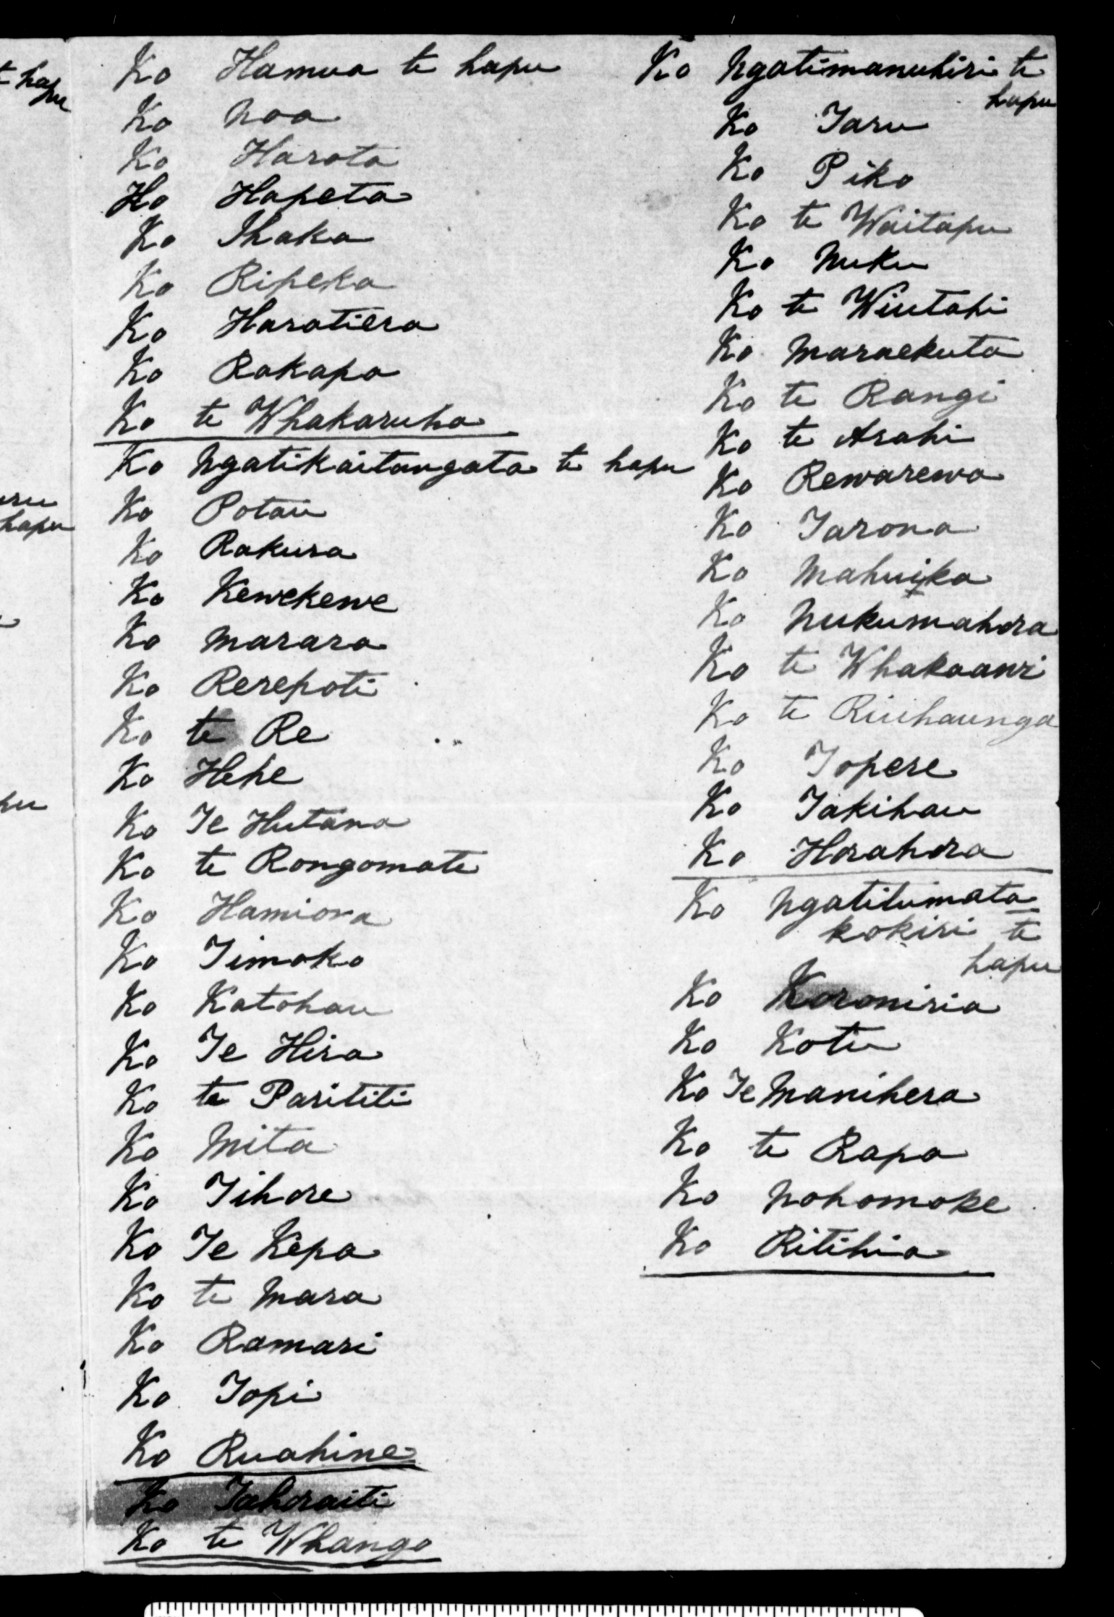 Ko Hamua te hapu
Ko Noa
Ko Harota
Ko Hapeta
Ko Ihaka
Ko Ripeka
Ko Haratiera
Ko Rakapa
Ko te Whakaruha
Ko Ngatikaitangata te hapu
Ko Potau
Ko Rakura
Ko Kewekewe
Ko Marara
Ko Rerepoti
Ko te Re
Ko Hehe
Ko Te Hutana
Ko te Rongomate
Ko Hamiora
Ko Timoko
Ko Katohau
Ko Te Hira
Ko te Parititi
Ko Mita
Ko Tihore
Ko Te Kepa
Ko te Mara
Ko Ramari
Ko Topi
Ko Ruahine
Ko Tahoraiti
Ko te Whango
Ko Ngatimanuhiri te
hapu
Ko Taru
Ko Piko
Ko te Waitapu
Ko Nuku
Ko te Wiutahi
Ko Maraekuta
Ko te Rangi
Ko te Arahi
Ko Rewarewa
Ko Tarona
Ko Mahuika
Ko Nukumahora
Ko te Whakaawi
Ko te Riuhaunga
Ko Topere
Ko Takihau
Ko Horahora
Ko Ngatitumata
kokiri te
hapu
Ko Koroniria
Ko Kotu
Ko Te Manihera
Ko te Rapa
Ko Nohomoke
Ko Ritihia
t hapu
hapu